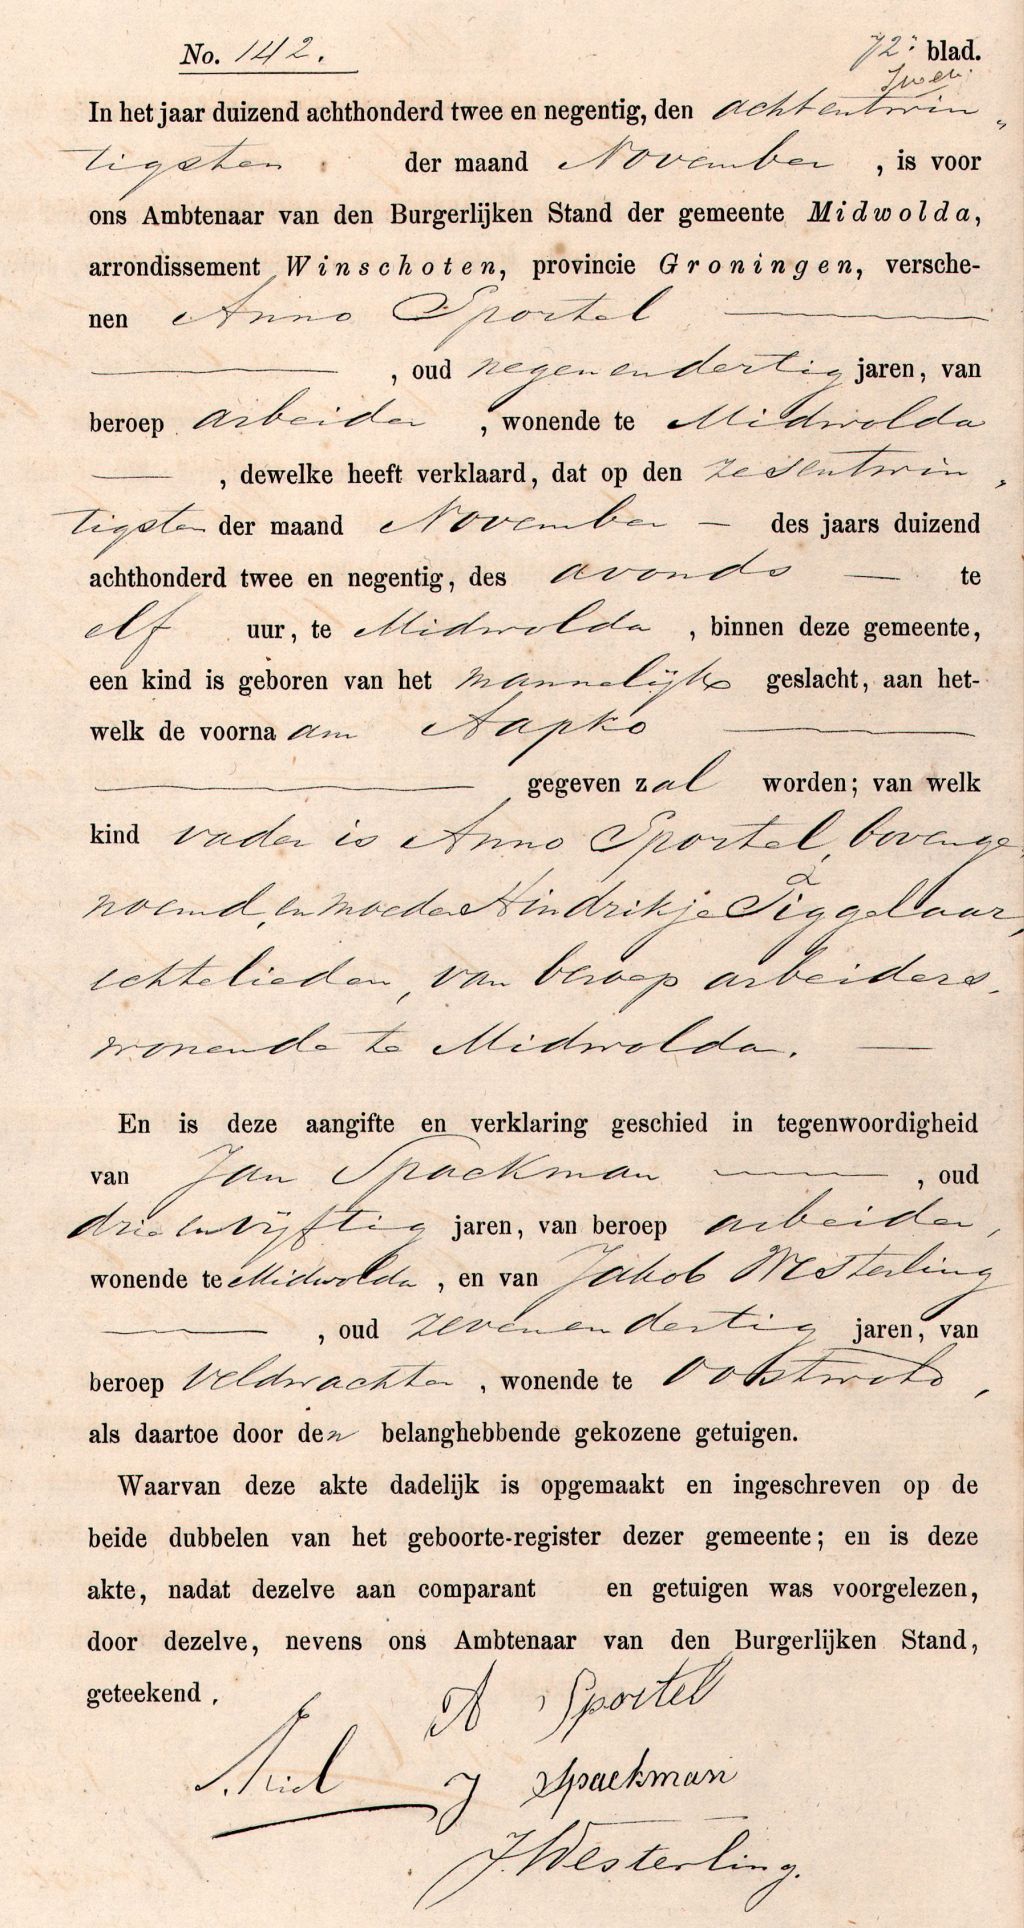 No. 142.
72e blad.
Twee
In het jaar duizend achthonderd twee en negentig, den achtentwin„
tigsten der maand November, is voor
ons Ambtenaar van den Burgerlijken Stand der gemeente Midwolda,
arrondissement Winschoten, provincie Groningen, versche-
nen Anno Sportel
, oud negenendertig jaren, van
beroep arbeider, wonende te Midwolda
, dewelke heeft verklaard, dat op den zesentwin„
tigsten der maand November — des jaars duizend
achthonderd twee en negentig, des avonds — te
elf uur, te Midwolda, binnen deze gemeente,
een kind is geboren van het mannelijk geslacht, aan het-
welk de voornaam Aapko
gegeven zal worden; van welk
kind vader is Anno Sportel, bovenge„
noemd, en moeder Hindrikje Tiggelaar,
echtelieden, van beroep arbeiders,
wonende te Midwolda. —
En is deze aangifte en verklaring geschied in tegenwoordigheid
van Jan Spaekman, oud
drieenvijftig jaren, van beroep arbeider,
wonende te Midwolda, en van Jakob Westerling
, oud zevenendertig jaren, van
beroep veldwachter, wonende te Oostwold,
als daartoe door den belanghebbende gekozene getuigen.
Waarvan deze akte dadelijk is opgemaakt en ingeschreven op de
beide dubbelen van het geboorte-register dezer gemeente; en is deze
akte, nadat dezelve aan comparant en getuigen was voorgelezen,
door dezelve, nevens ons Ambtenaar van den Burgerlijken Stand,
geteekend.
A Sportel
J Spaekman
J. Westerling.